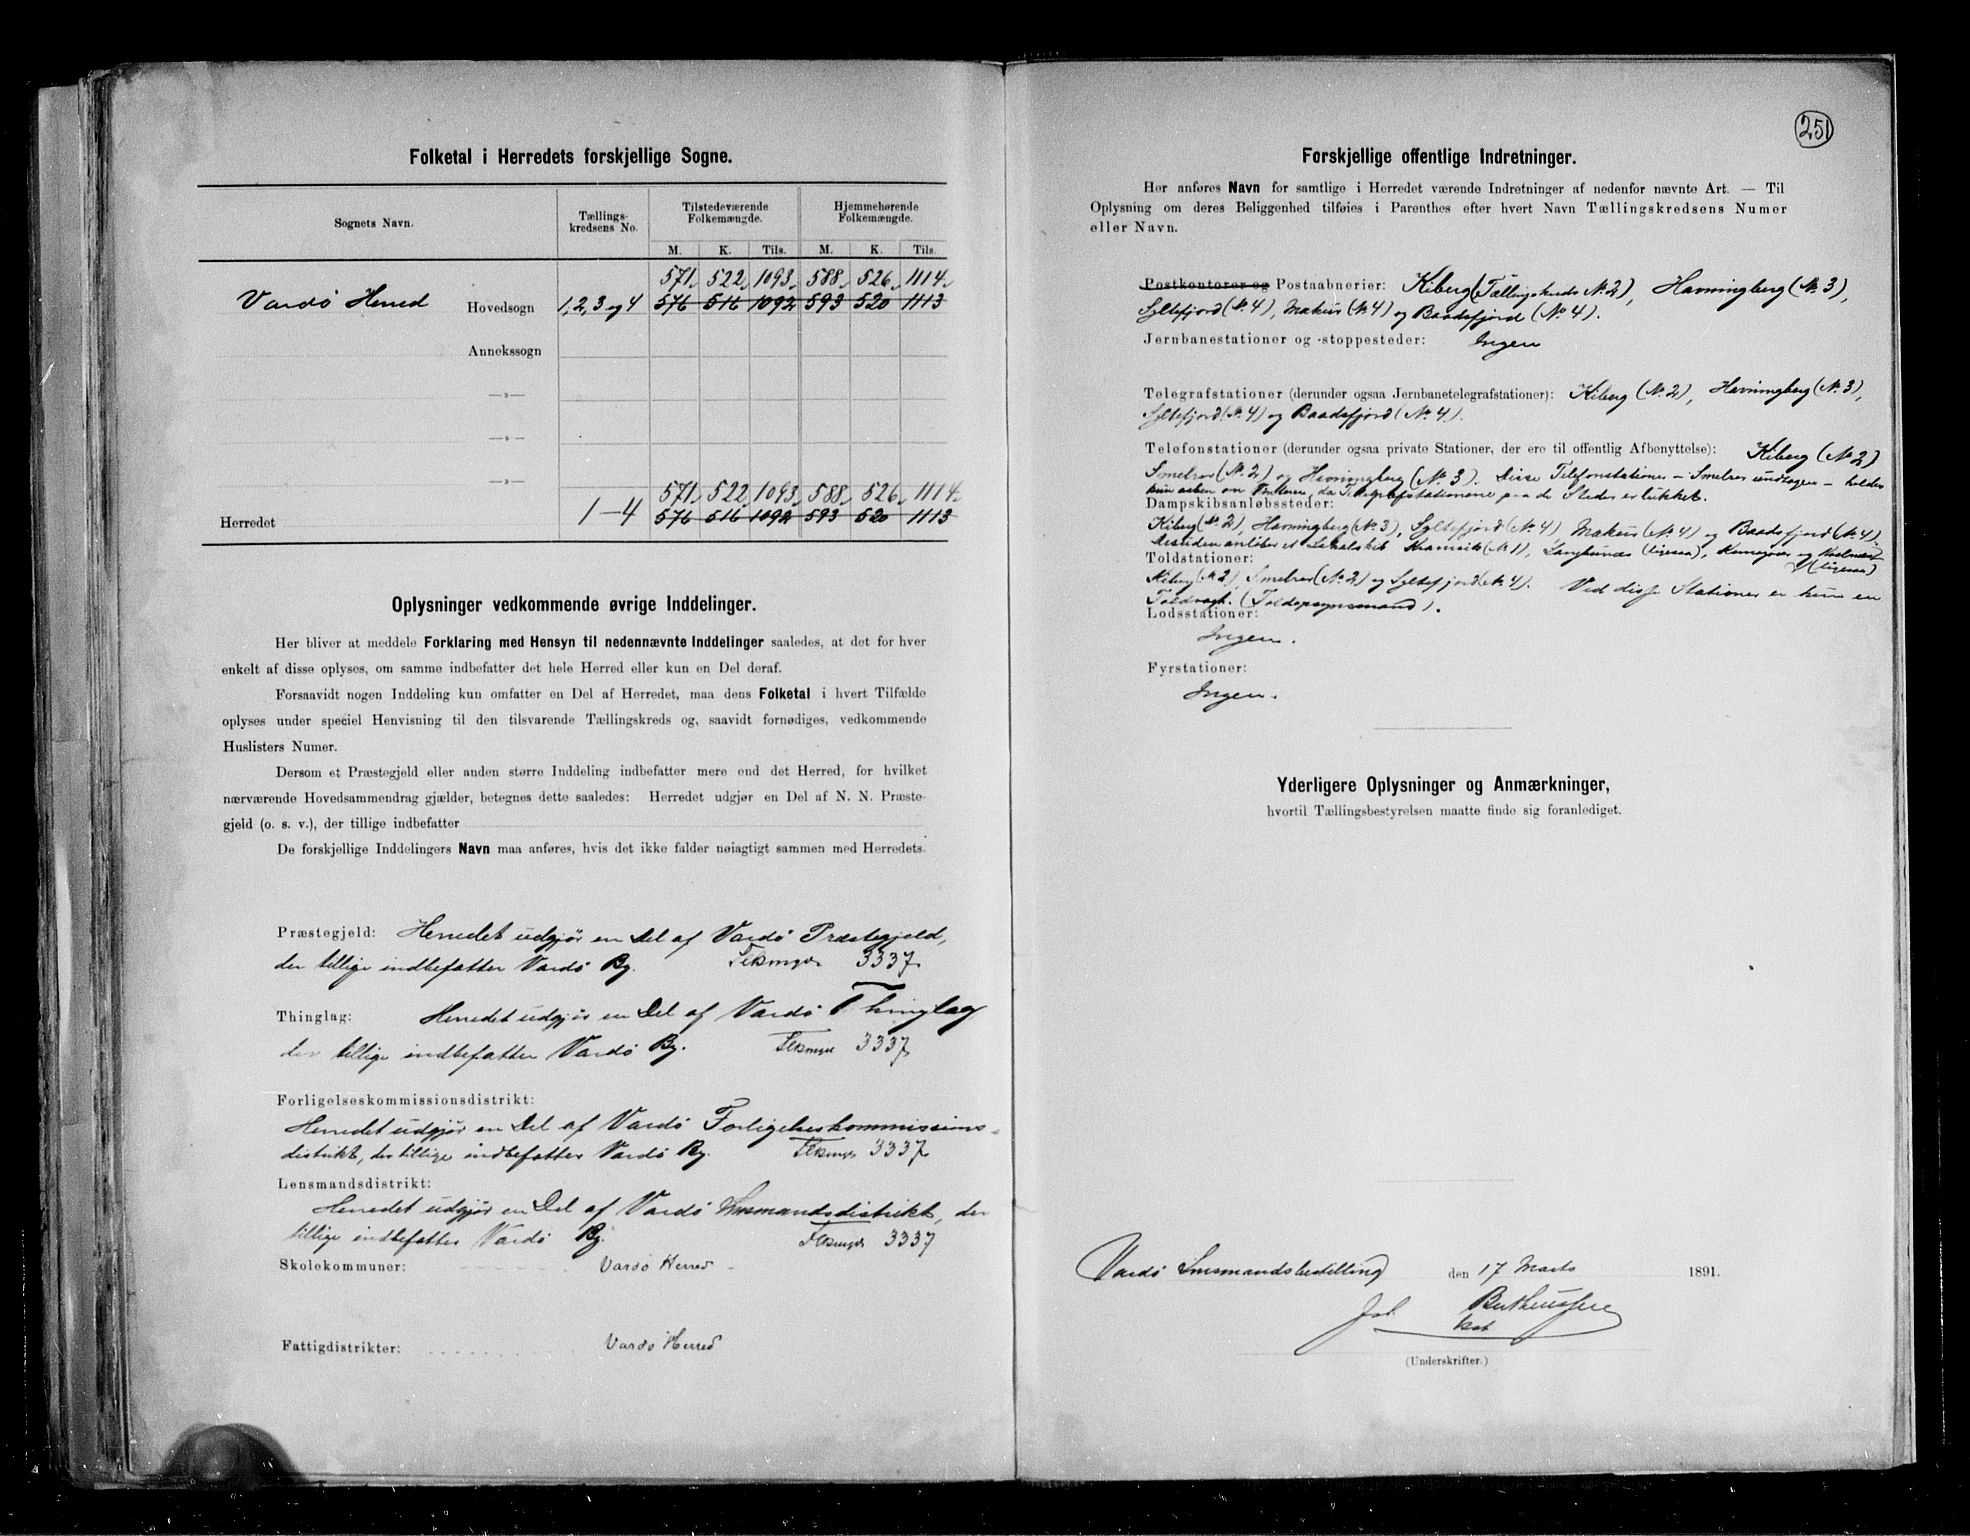 Folketal i Herredets forskjellige Sogne.
Sognets Navn. Tællings- kredsens No. Tilstedeværende Folkemængde. Hjemmehørende Folkemængde.
M. K. Tils. M. K. Tils.
571 522 1093 588 526 1114
Vardö Herred Hovedsogn 1, 2, 3 og 4 576 516 1092 593 520 1113
Annekssogn
—»—
—»—
—»—
571 522 1093 588 526 1114
Herredet 1-4 576 516 1092 593 520 1113
Oplysninger vedkommende øvrige Inddelinger.
Her bliver at meddele Forklaring med Hensyn til nedennævnte Inddelinger saaledes, at det for hver
enkelt af disse oplyses, om samme indbefatter det hele Herred eller kun en Del deraf.
Forsaavidt nogen Inddeling kun omfatter en Del af Herredet, maa dens Folketal i hvert Tilfælde
oplyses under speciel Henvisning til den tilsvarende Tællingskreds og, saavidt fornødiges, vedkommende
Huslisters Numer.
Dersom et Præstegjeld eller anden større Inddeling indbefatter mere end det Herred, for hvilket
nærværende Hovedsammendrag gjælder, betegnes dette saaledes: Herredet udgjør en Del af N. N. Præste-
gjeld (o. s. v.), der tillige indbefatter
De forskjellige Inddelingers Navn maa anføres, hvis det ikke falder nøiagtigt sammen med Herredets.
Præstegjeld: Herredet udgjör en Del af Vardö Præstegjeld,
der tillige indbefatter Vardö By. 3337
Thinglag: Herredet udgjör en Del af Vardö Thinglag
der tillige indbefatter Vardö By. 3337
Forligelseskommissionsdistrikt:
Herredet udgjör en Del af Vardö Forligelseskommissions-
distrikt, der tillige indbefatter Vardö By. 3337
Lensmandsdistrikt:
Herredet udgjör en Del af Vardö Lensmandsdistrikt, der
tillige indbefatter Vardö By. 3337
Skolekommuner: Vardö Herred
Fattigdistrikter: Vardö Herred
251
Forskjellige offentlige Indretninger.
Her anføres Navn for samtlige i Herredet værende Indretninger af nedenfor nævnte Art. — Til
Oplysning om deres Beliggenhed tilføies i Parenthes efter hvert Navn Tællingskredsens Numer
eller Navn.
Postkontorer og Postaabnerier: Kiberg (Tællingskreds No. 2), Havningberg (No. 3),
Syltefjord (No. 4), Makur (No. 4) og Baadsfjord (No. 4).
Jernbanestationer og -stoppesteder: Ingen
Telegrafstationer (derunder ogsaa Jernbanetelegrafstationer): Kiberg (No. 2), Havningberg (No. 3),
Syltefjord (No. 4) og Baadsfjord (No. 4).
Telefonstationer (derunder ogsaa private Stationer, der ere til offentlig Afbenyttelse): Kiberg (No. 2)
Smelror (No. 2) og Havningberg (No. 3). Disse Telefonstationer - Smelror undtagen - holdes
kun aaben om Vinteren, da Telegrafstationerne paa de Steder er lukket.
Dampskibsanløbssteder:
Kiberg (No. 2), Havningberg (No. 3), Syltefjord (No. 4), Makur (No. 4) og Baadsfjord (No. 4).
Desuden anlöber et Lokalskib Kramvik (No. 1), Langbunæs (ligesaa), og (ligesaa)
Toldstationer:
Kiberg (No. 2), Smelror (No. 2) og Syltefjord (No. 4). Ved disse Stationer er kun en
Toldvagt. (Toldopsynsmand).
Lodsstationer:
Ingen.
Fyrstationer:
Ingen.
Yderligere Oplysninger og Anmærkninger,
hvortil Tællingsbestyrelsen maatte finde sig foranlediget.
Vardö Lensmandsbestilling den 17 Marts 1891.
Joh.
(Underskrifter.)